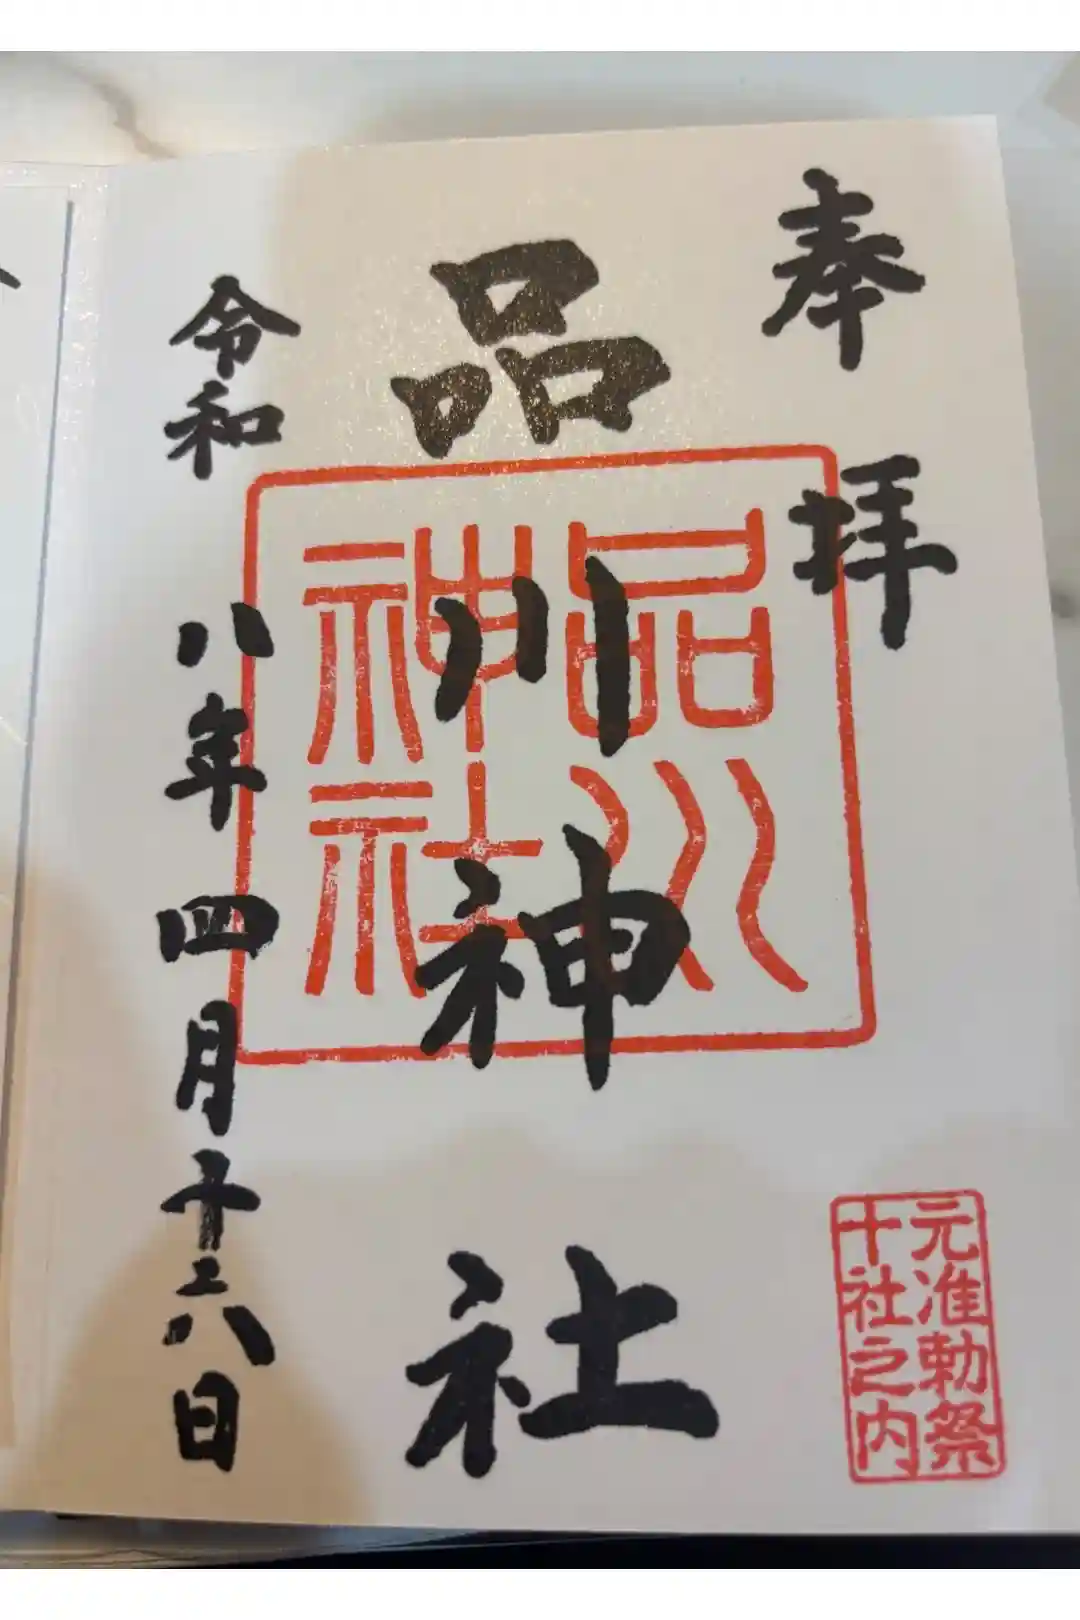 奉拝
品川神社
品川
神社
元准勅祭
十社之内
令和八年四月十六日